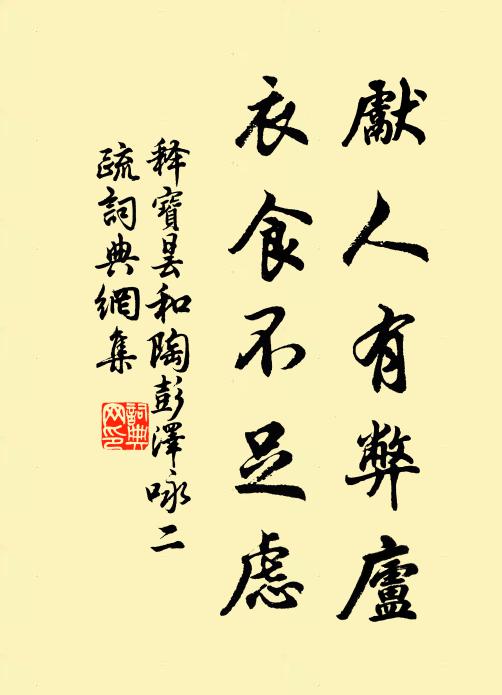 獻人有弊廬
衣食不足慮
释寶曇和陶彭澤咏二
疏詞典網集
詞典
网印